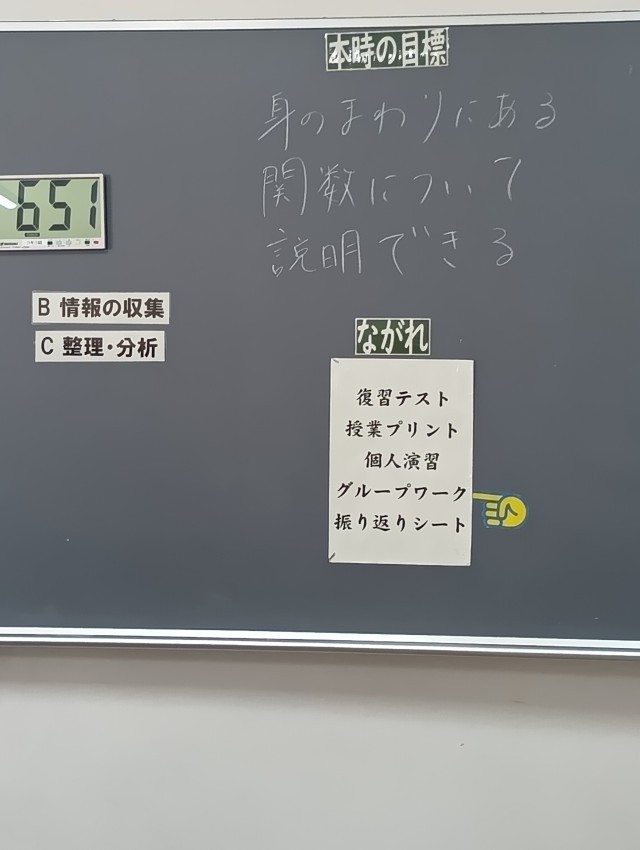 本時の目標
身のまわりにある
関数について
説明できる
651
B 情報の収集
C 整理・分析
ながれ
復習テスト
授業プリント
個人演習
グループワーク
振り返りシート